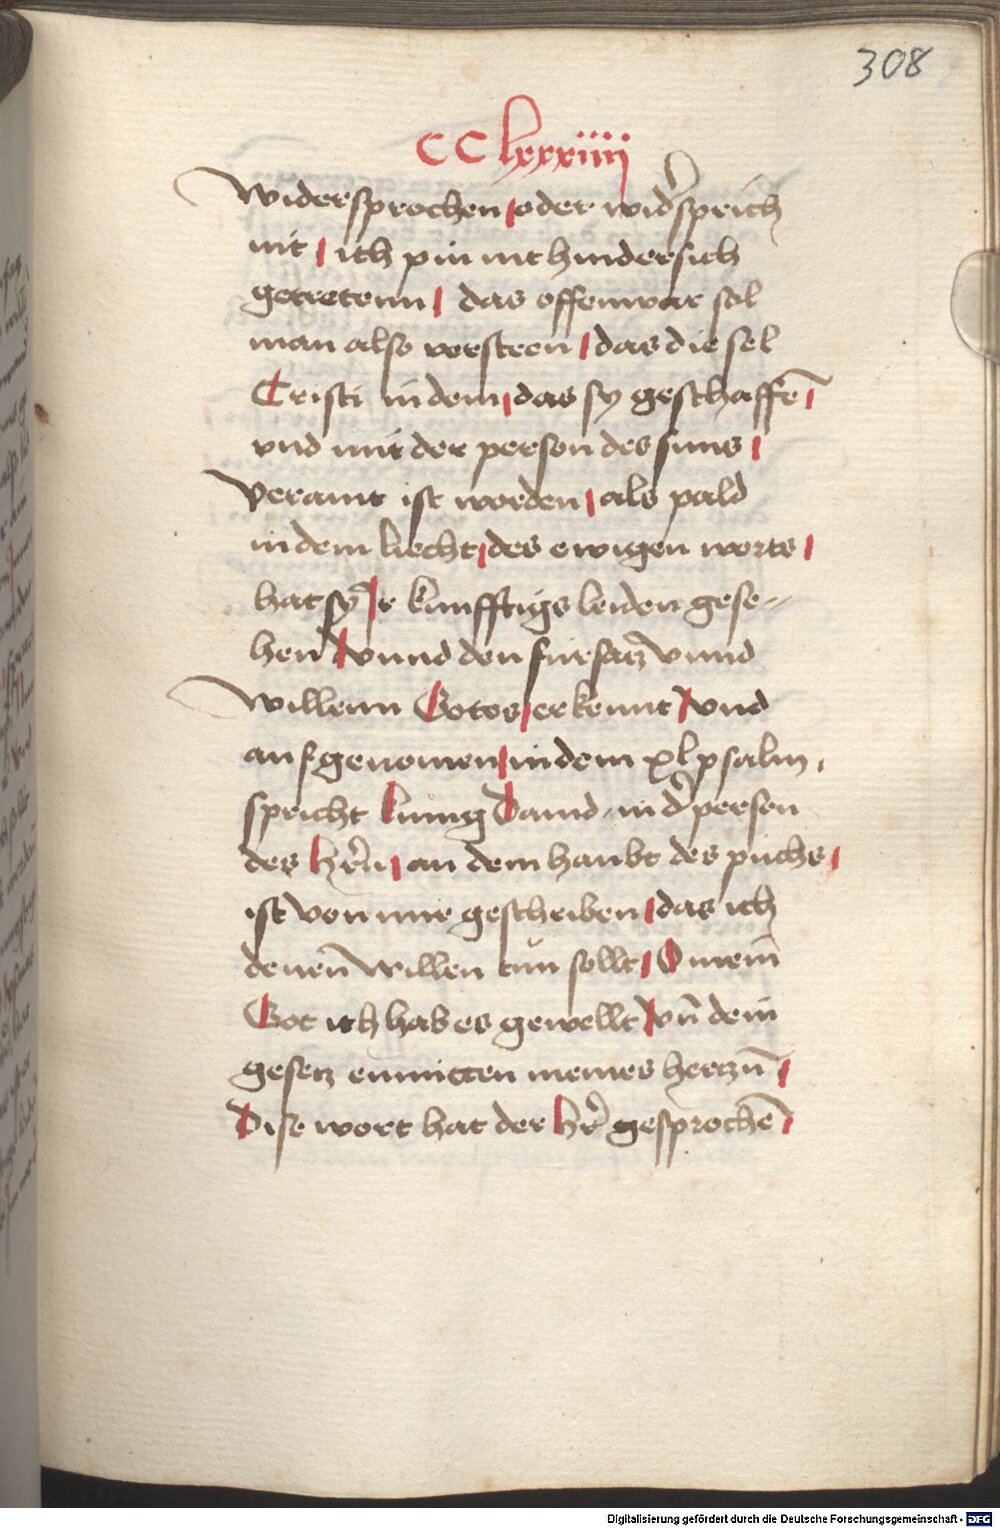 308
CC lxxxiiii
widersprochen / oder wid'sprich
nit / ich pin nit hindersich
getretenn / das offenwar sol
man also versteen / das die sel
Cristi in dem / das sy geschaffē /
vnd mit der person des suns /
veraint ist worden / als pald
in dem liecht / des ewigen worts /
hat sy Ir kunfftigs leiden gese-
hen Vnnd den fürsatz vnnd
willenn Gotes / erkennt Vnd
aufgenomen / in dem xl psalm,
spricht kunig Dauid in d' person
des hr̄n / an dem haubt des puchs /
ist von mir geschriben / das ich
deinen̄ willen tun sollt / O mein
Got ich hab es gewellt Vn̄ dein
gesetz enmitten meines hertzn̄ /
Dise wort hat der hr̄ gesprochē /
Digitalisierung gefördert durch die Deutsche Forschungsgemeinschaft - DFG